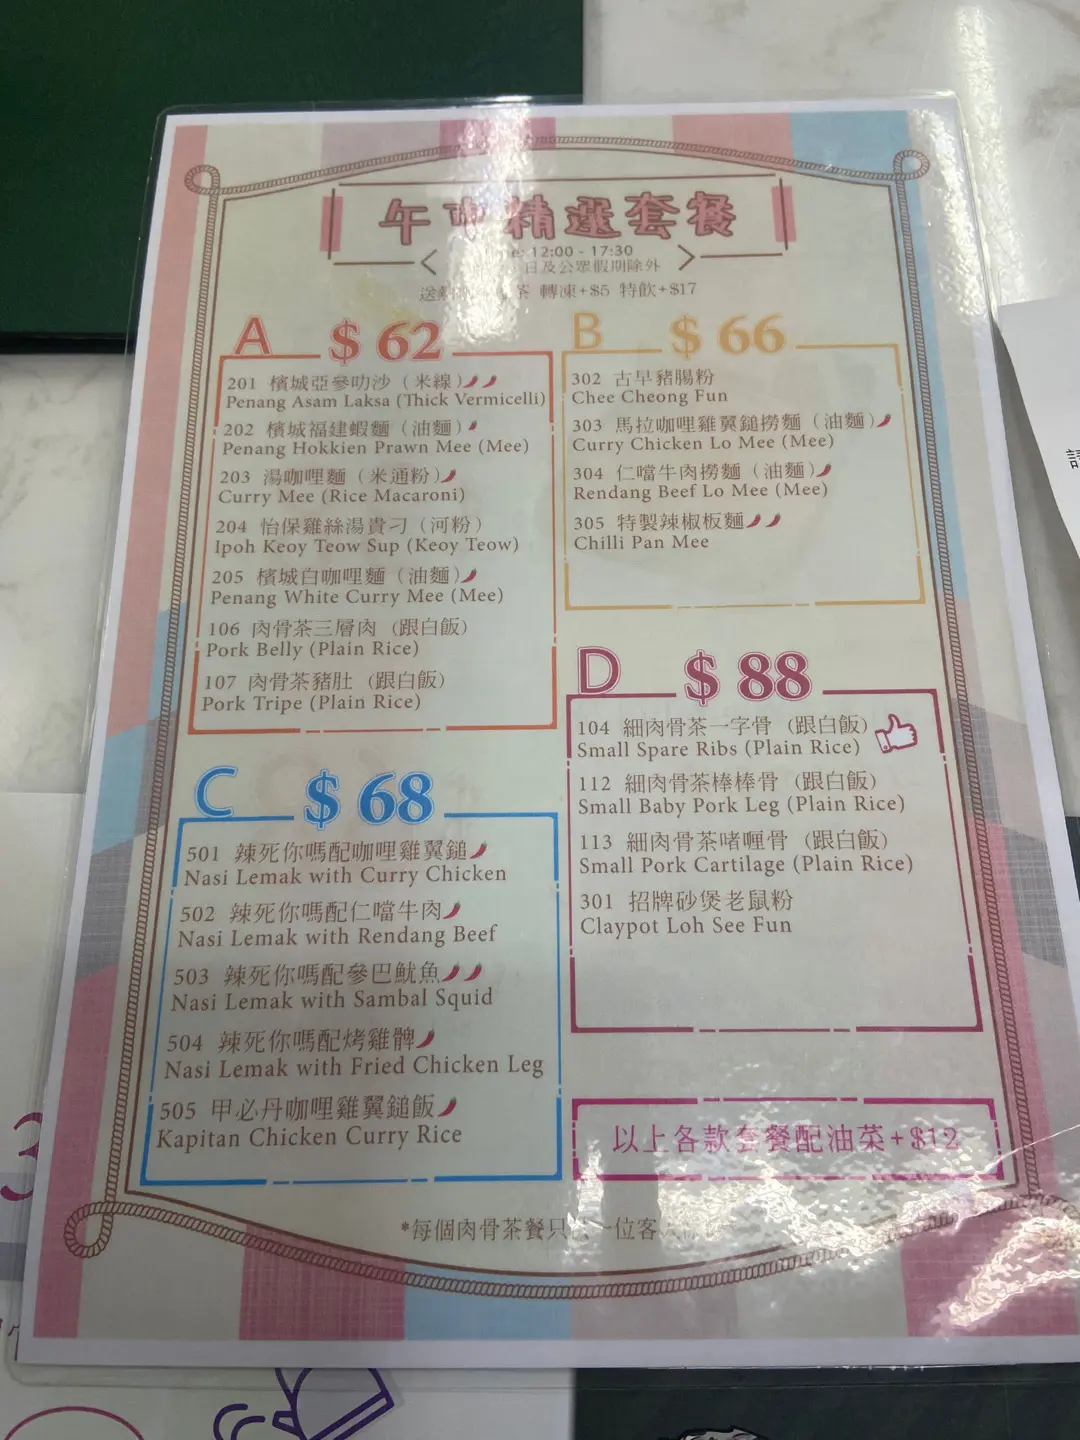 午市精選套餐
12:00 - 17:30
日及公眾假期除外
送 茶 轉凍+$5 特飲+$17
A $ 62
201 檳城亞參叻沙（米線）
Penang Asam Laksa (Thick Vermicelli)
202 檳城福建蝦麵（油麵）
Penang Hokkien Prawn Mee (Mee)
203 湯咖哩麵（米通粉）
Curry Mee (Rice Macaroni)
204 怡保雞絲湯貴刁（河粉）
Ipoh Keoy Teow Sup (Keoy Teow)
205 檳城白咖哩麵（油麵）
Penang White Curry Mee (Mee)
106 肉骨茶三層肉（跟白飯）
Pork Belly (Plain Rice)
107 肉骨茶豬肚（跟白飯）
Pork Tripe (Plain Rice)
B $ 66
302 古早豬腸粉
Chee Cheong Fun
303 馬拉咖哩雞翼鎚撈麵（油麵）
Curry Chicken Lo Mee (Mee)
304 仁噹牛肉撈麵（油麵）
Rendang Beef Lo Mee (Mee)
305 特製辣椒板麵
Chilli Pan Mee
C $ 68
501 辣死你嗎配咖哩雞翼鎚
Nasi Lemak with Curry Chicken
502 辣死你嗎配仁噹牛肉
Nasi Lemak with Rendang Beef
503 辣死你嗎配參巴魷魚
Nasi Lemak with Sambal Squid
504 辣死你嗎配烤雞髀
Nasi Lemak with Fried Chicken Leg
505 甲必丹咖哩雞翼鎚飯
Kapitan Chicken Curry Rice
D $ 88
104 細肉骨茶一字骨（跟白飯）
Small Spare Ribs (Plain Rice)
112 細肉骨茶棒棒骨（跟白飯）
Small Baby Pork Leg (Plain Rice)
113 細肉骨茶啫喱骨（跟白飯）
Small Pork Cartilage (Plain Rice)
301 招牌砂煲老鼠粉
Claypot Loh See Fun
以上各款套餐配油菜+$12
*每個肉骨茶餐只 一位客